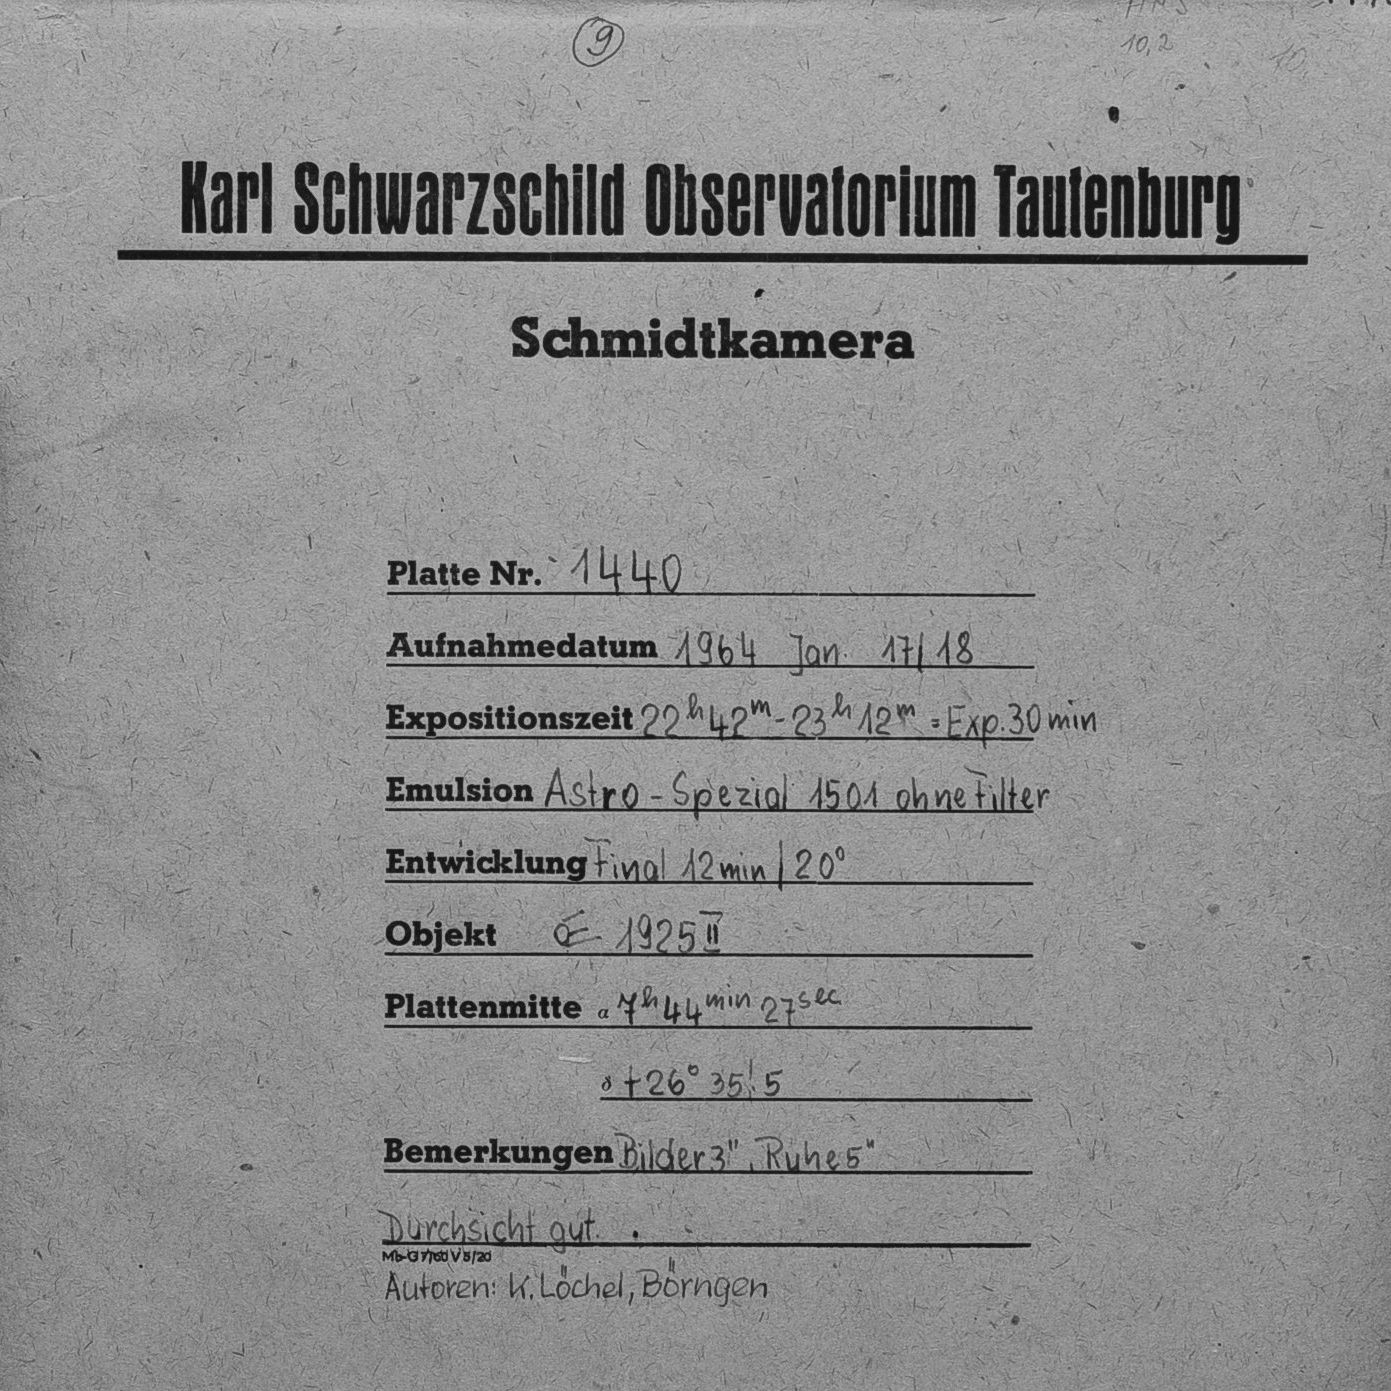 9
10,2
Karl Schwarzschild Observatorium Tautenburg
Schmidtkamera
Platte Nr. 1440
Aufnahmedatum 1964 Jan. 17/18
Expositionszeit 22ʰ42ᵐ-23ʰ12ᵐ = Exp. 30 min
Emulsion Astro-Spezial 1501 ohne Filter
Entwicklung Final 12 min/20°
Objekt 1925 II
Plattenmitte α 7ʰ44ᵐⁱⁿ27ˢᵉᶜ
δ +26° 35!5
Bemerkungen Bilder 3", Ruhe 5"
Durchsicht gut.
Mb-G 7/60 V 5/20
Autoren: K. Löchel, Börngen